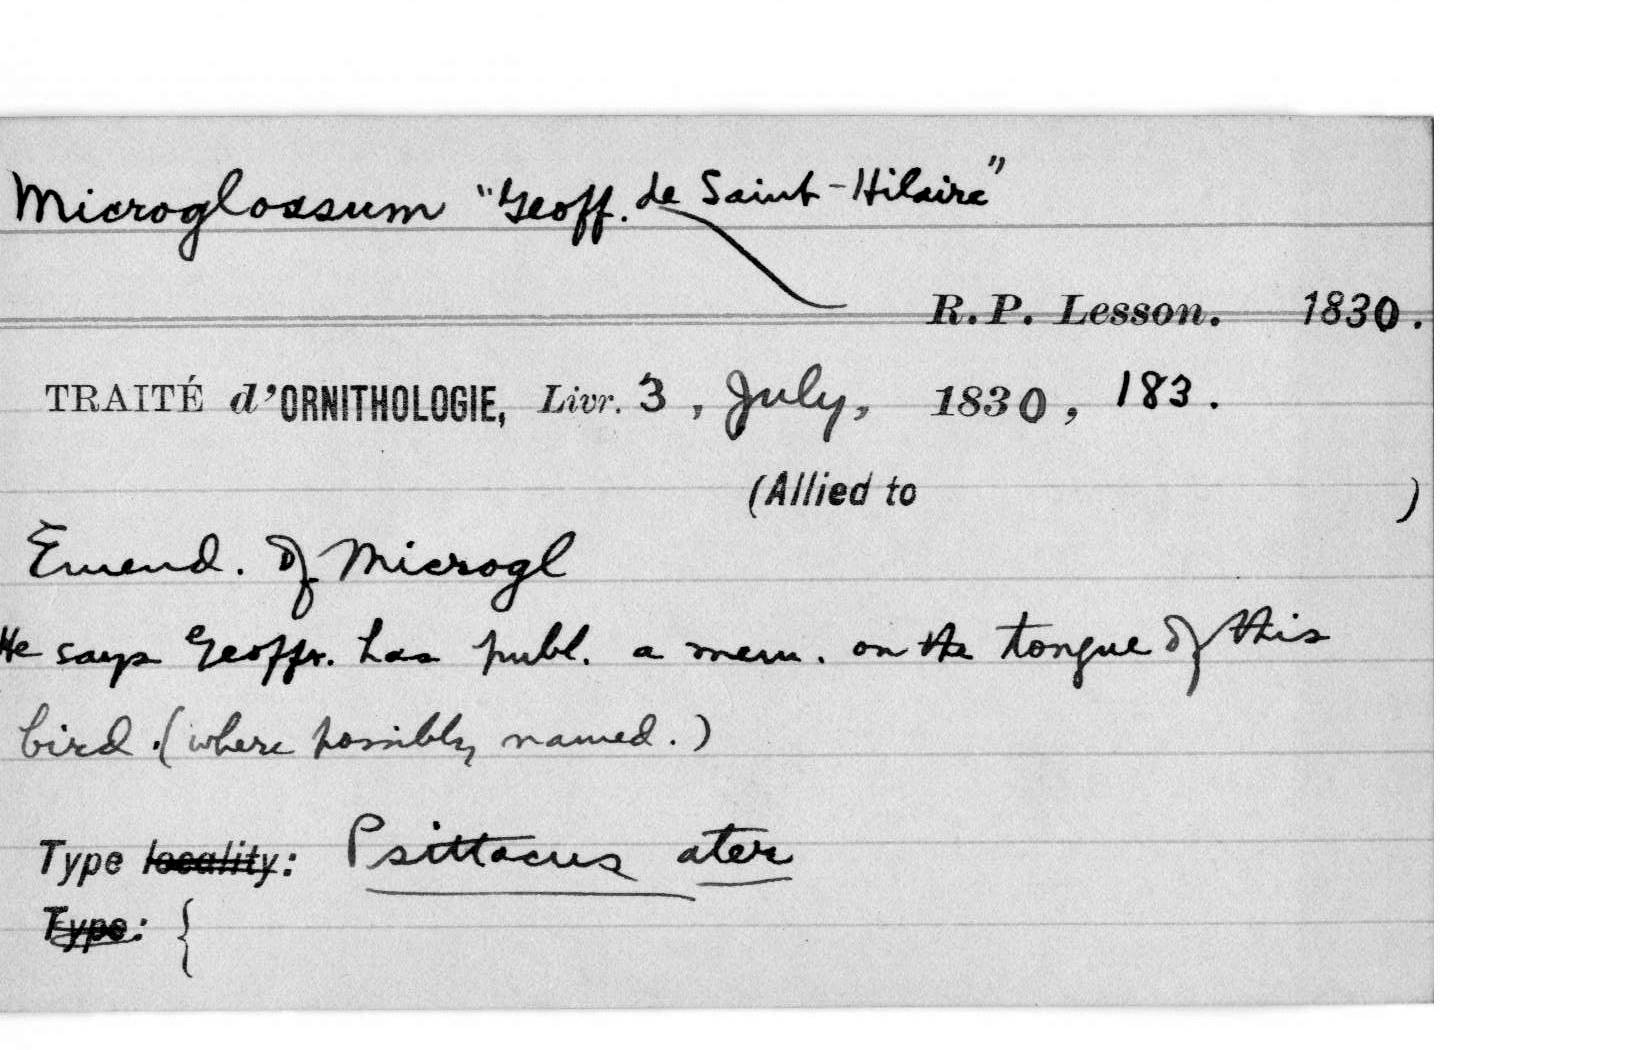 Microglossum "Geoff. de Saint-Hilaire"
R.P. Lesson. 1830.
TRAITÉ d'ORNITHOLOGIE, Livr. 3, July, 1830, 183.
(Allied to )
Emend. of Microgl
He says Geoffr. has publ. a mem. on the tongue of this
bird. (where possibly named.)
Type locality: Psittacus ater
Type: {